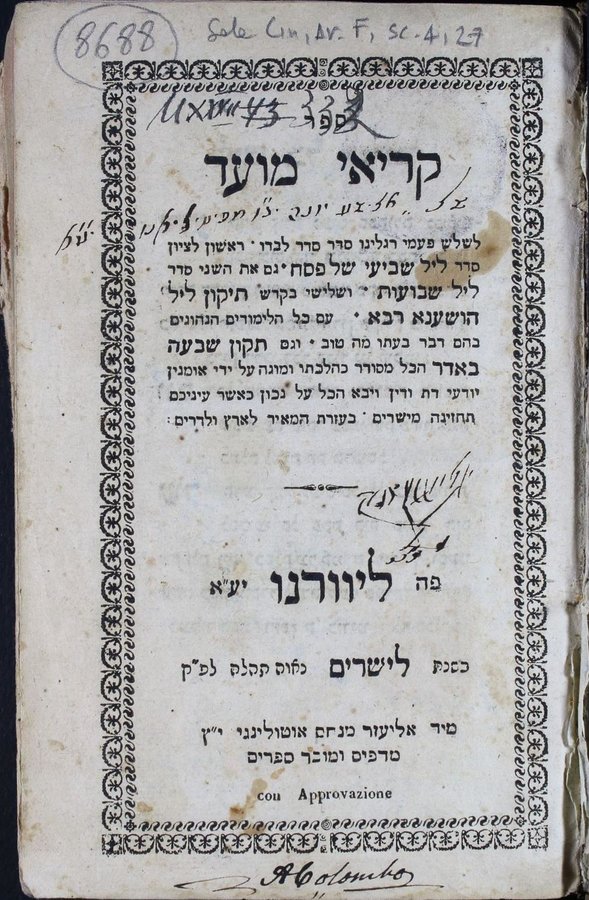 8688
ספר
קריאי מועד
לשלש פעמי רגלינו סדר סדר לבדו · ראשון לציון
סדר ליל שביעי של פסח · גם את השני סדר
ליל שבועות · ושלישי בקדש תיקון ליל
הושענא רבא · עם כל הלימודים הנהוגים
בהם דבר בעתו מה טוב · וגם תקון שבעה
באדר הכל מסודר כהלכתו ומוגה על ידי אומנין
יודעי דת ודין ויבא הכל על נכון כאשר עיניכם
תחזינה מישרים · בעזרת המאיר לארץ ולדרים :
פה ליוורנו יע"א
בשנת לישרים נאוה תהלה לפ"ק
מיד אליעזר מנחם אוטולינגי י"ץ
מדפיס ומוכר ספרים
con Approvazione
A Colombo